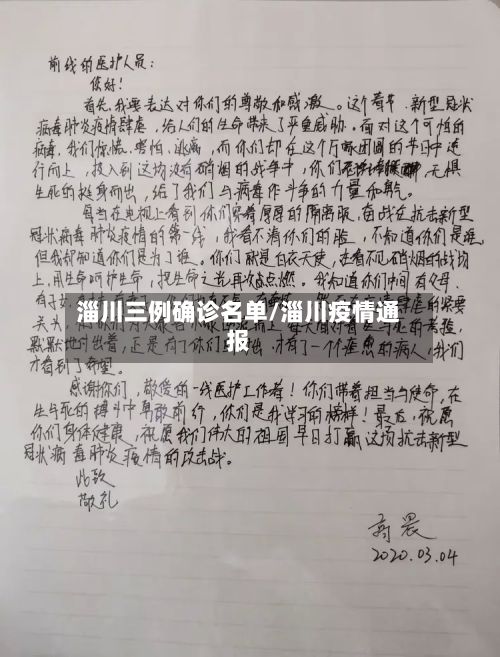 前线的医护人员：
你好！
首先，我要表达对你们的尊敬和感激。这个春节，新型冠状
病毒肺炎疫情肆虐，给人们的生命带来了严重威胁。面对这个可怕的
病毒，我们惊慌、害怕、逃离，而你们却在这个万家团圆的节日中逆
行而上，投入到这场没有硝烟的战争中，你们无惧
生死的挺身而出，给了我们与病毒作斗争的力量和勇气。
每当在电视上看到你们穿着厚厚的隔离服，奋战在抗击新型
冠状病毒肺炎疫情的第一线，我看不清你们的脸，不知道你们是谁，
但我却知道你们是为了谁。你们就是白衣天使，在看不见硝烟的战场
上，用生命呵护生命，把生命之光再次点燃。我知道你们中间有父母，
淄川三例确诊名单/淄川疫情通
报
关头
默默地付出着，还是有了你们的付出，才有了一个个痊愈的病人，我们
才看到了希望。
感谢你们，敬爱的一线医护工作者！你们带着担当与使命，在
生与死的搏斗中勇敢前行，你们是我学习的榜样！最后，祝愿
你们身体健康，祝愿我们伟大的祖国早日打赢这场抗击新型
冠状病毒肺炎疫情的攻击战。
此致
敬礼
高晨
2020.03.04